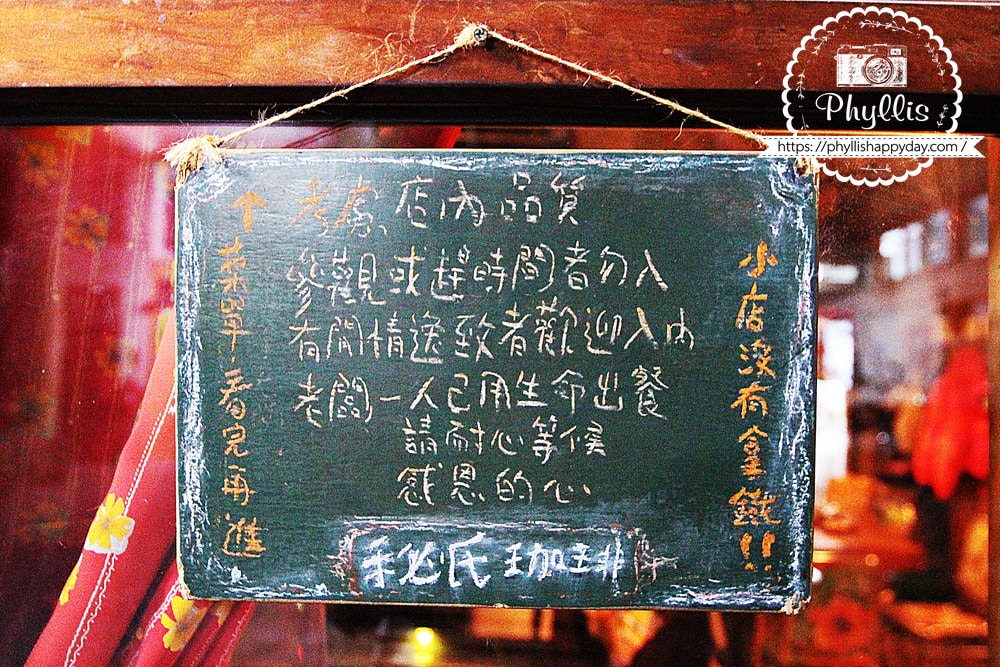 Phyllis
https://phyllishappyday.com/
小店沒有拿鐵!!
考慮店內品質
參觀或趕時間者勿入
有閒情逸致者歡迎入內
老闆一人已用生命出餐
請耐心等候
感恩的心
秘氏珈琲
↑菜單看完再進